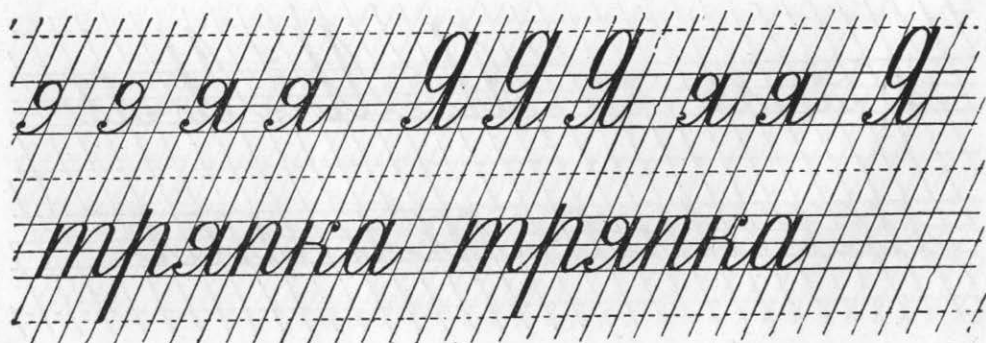 я я я я Я Я Я я я Я
тряпка тряпка